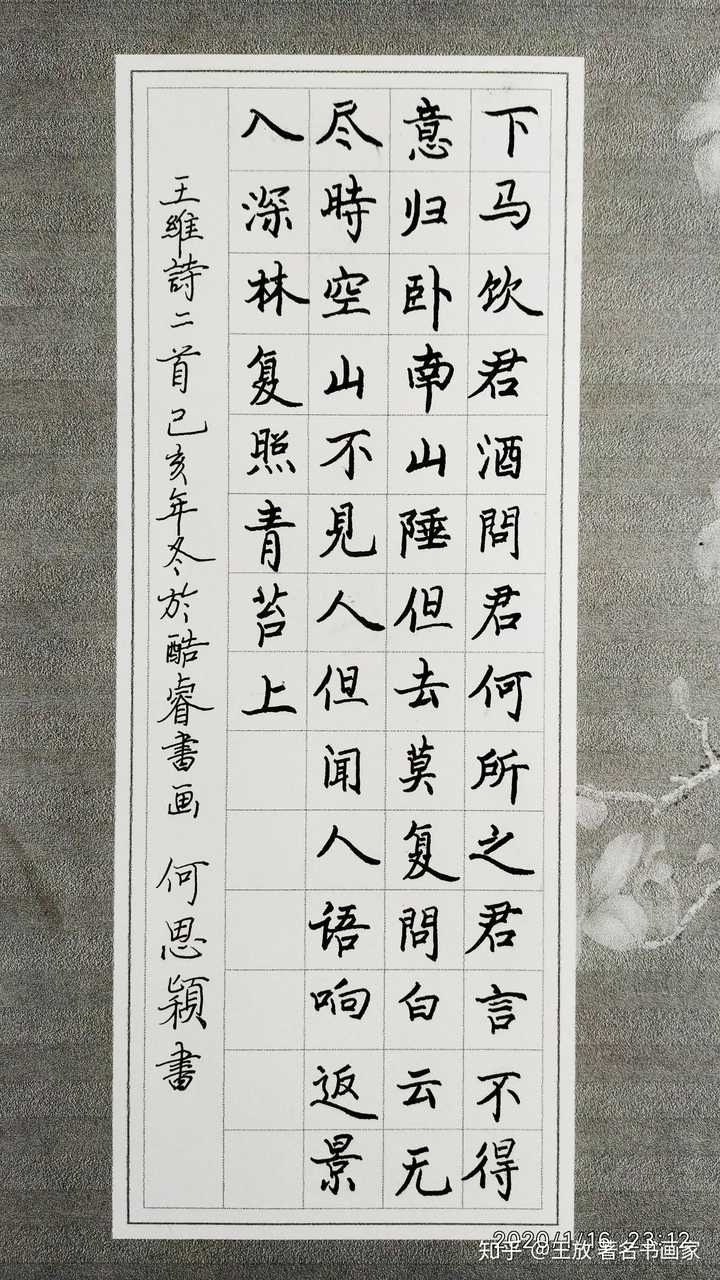 下马饮君酒問君何所之君言不得
意归卧南山陲但去莫复問白云无
尽時空山不見人但闻人语响返景
入深林复照青苔上
王維詩二首己亥年冬於酷睿書画 何思颖書
2020/1/16 23:12
知乎 @王放 著名书画家